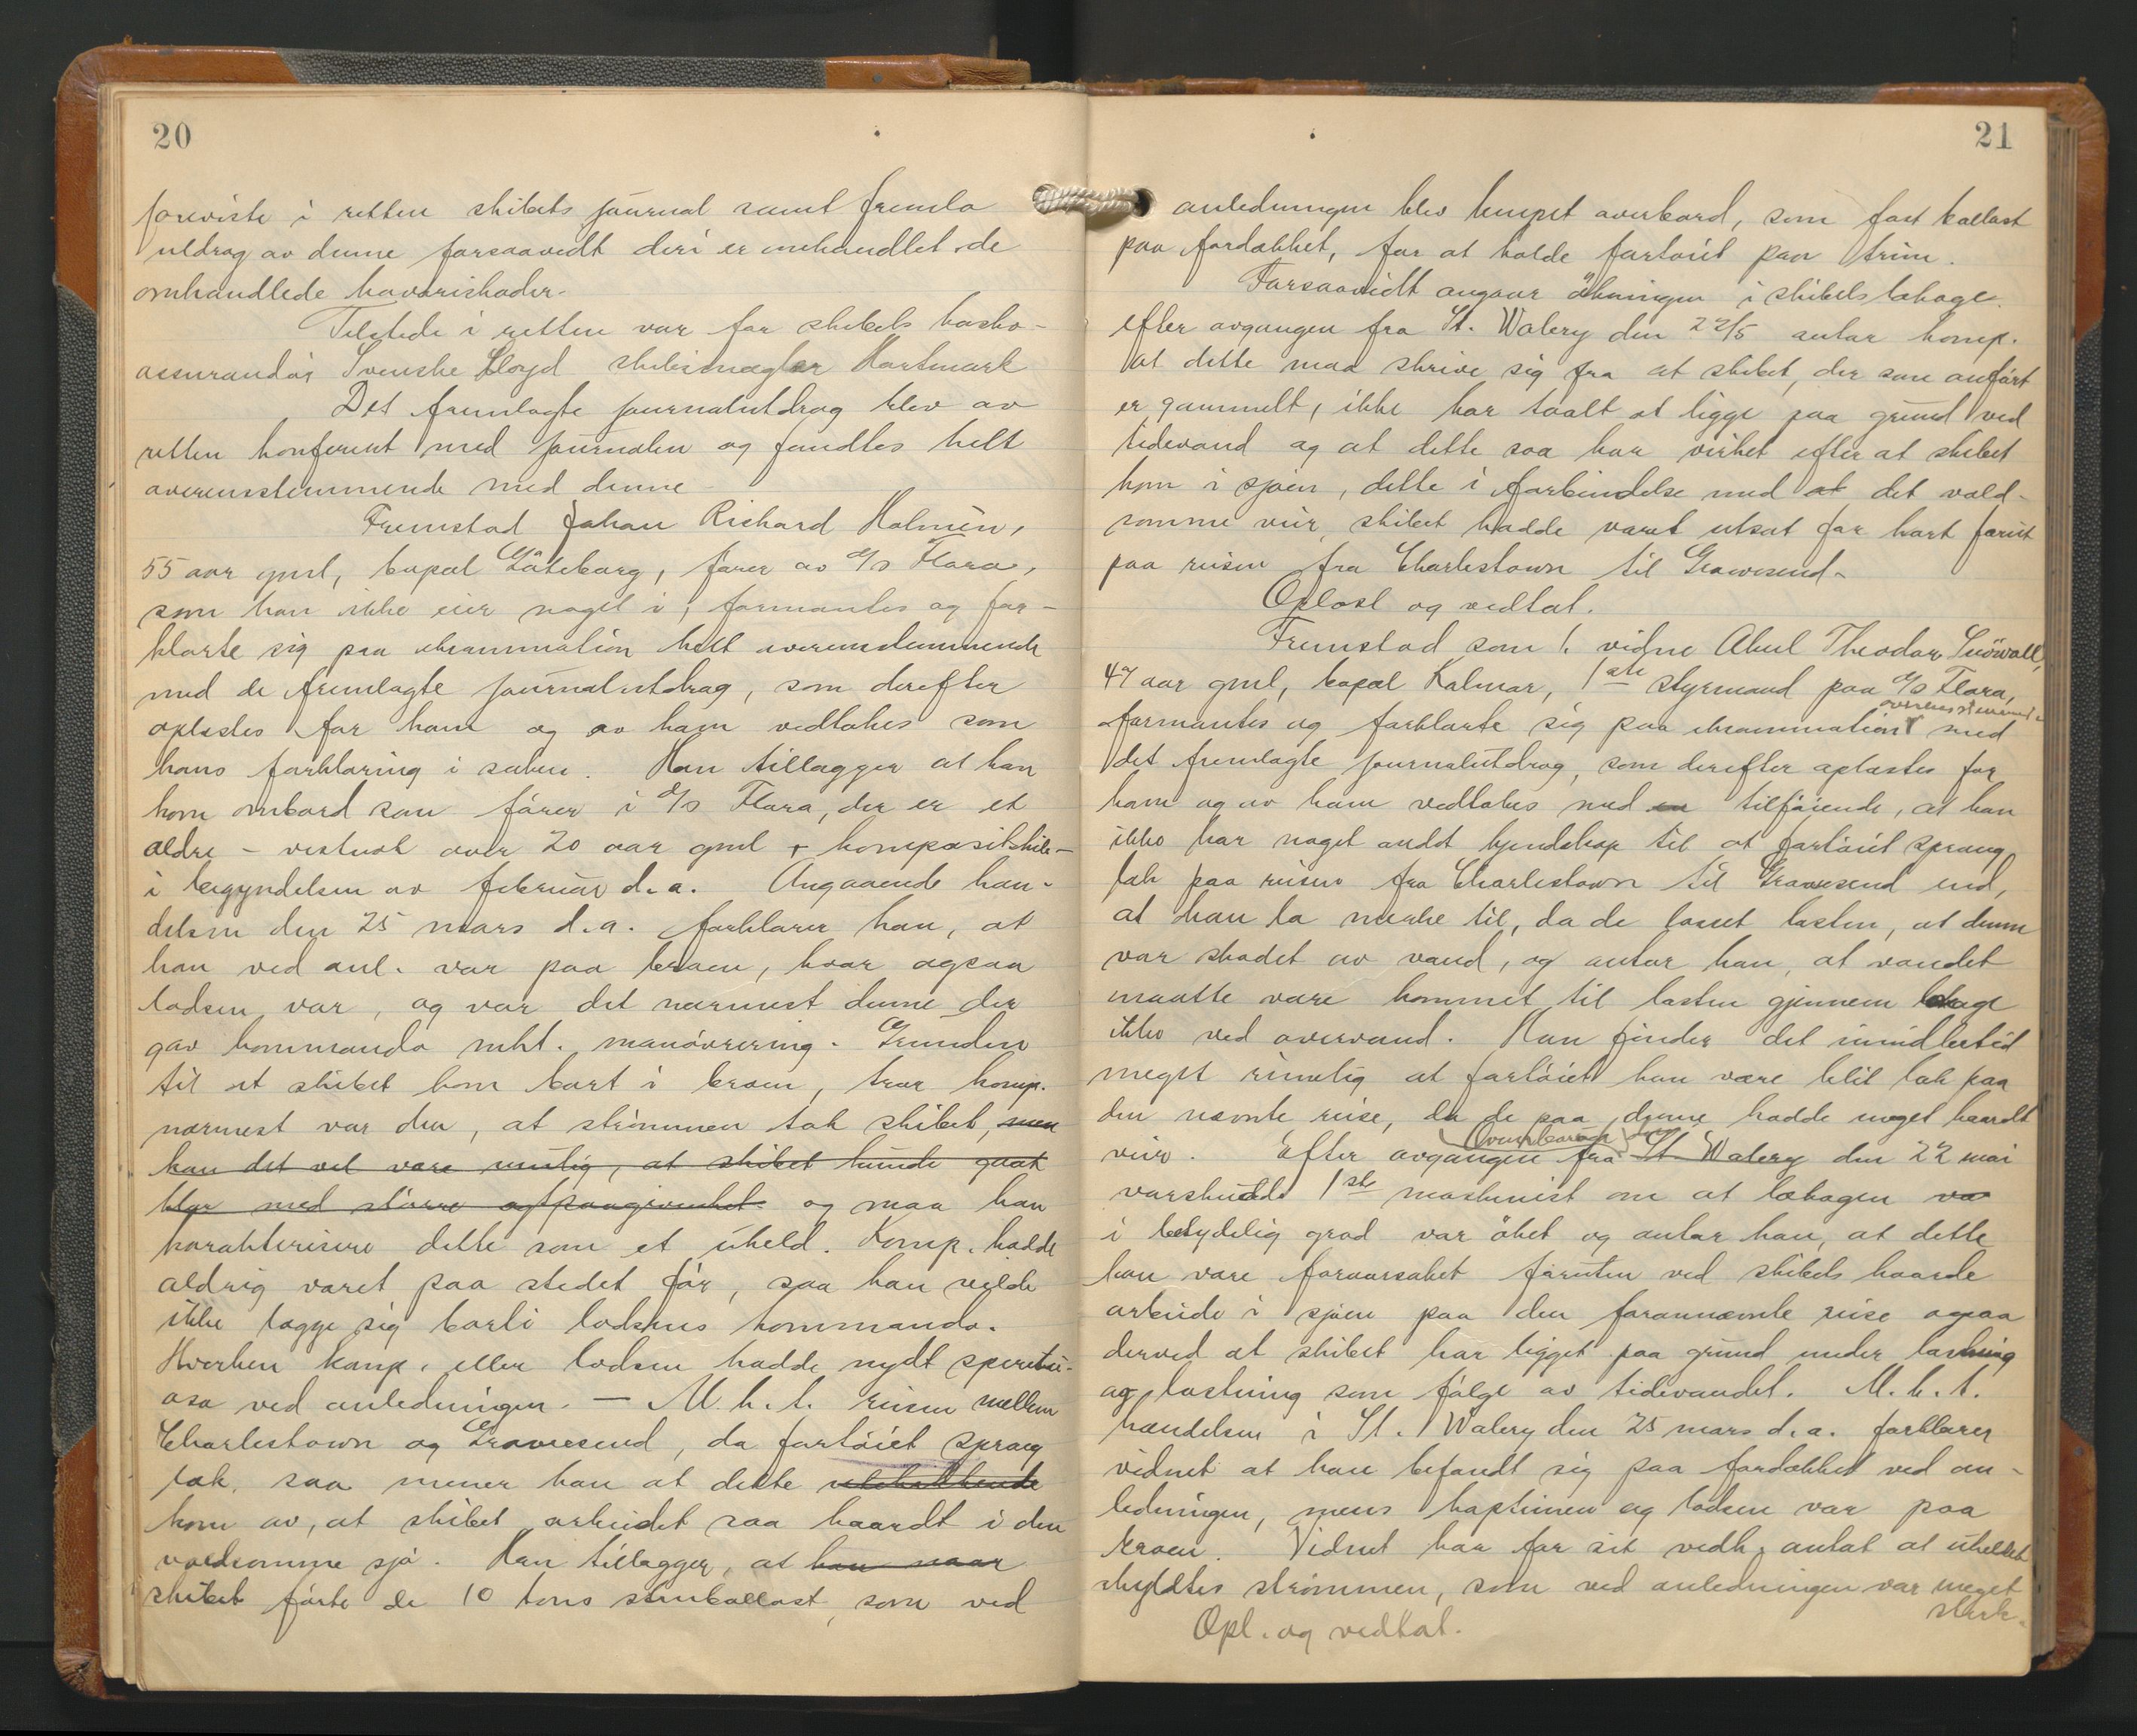 20
foreviste i retten skibets journal samt fremla
utdrag av denne forsaavidt deri er omhandlet de
omhandlede havariskader.
Tilstede i retten var for skibets kasko-
assurandør Svenske Lloyd skibsmægler Hartmark
Det fremlagte journalutdrag blev av
retten konferert med journalen og fandtes helt
overensstemmende med denne
Fremstod Johan Richard Holmén,
55 aar gml, bopæl Gøteborg, fører av d/s Flora,
som han ikke eier noget i, formantes og for-
klarte sig paa eksammination helt overensstemmende
med de fremlagte journalutdrag, som derefter
oplæstes for ham og av ham vedtokes som
hans forklaring i saken. Han tillægger at han
kom ombord som fører i d/s Flora, der er et
ældre - vistnok over 20 aar gml + komposítskib -
i begyndelsen av februar d.a. Angaaende hæn-
delsen den 25 mars d.a. forklarer han, at
han ved anl. var paa broen, hvor ogsaa
lodsen var, og var det nærmest denne der
gav kommando mht. manøvrering. Grunden
til at skibet kom bort i broen, tror komp.
nærmest var den, at strømmen tok skibet, men
kan det vel være mulig, at skibet kunde gaat
klar med større agtpaagivenhet og maa han
karakterisere dette som et uheld. Komp. hadde
aldrig været paa stedet før, saa han vilde
ikke lægge sig borti lodsens kommando.
Hverken komp. eller lodsen hadde nydt spirituo-
osa ved anledningen. - M.h.t. reisen mellem
Charlestown og Gravesend, da fartøiet sprang
læk, saa mener han at dette
kom av, at skibet arbeidet saa haardt i den
voldsomme sjø. Han tillægger, at han naar
skibet førte de 10 tons stenballast, som ved
21
anledningen blev lempet overbord, som fast ballast
paa fordækket, for at holde fartøiet paa trim.
Forsaavidt angaar økningen i skibets lækage
efter avgangen fra St. Walery den 22/5 antar komp.
at dette maa skrive sig fra at skibet, der som anført
er gammelt, ikke har taalt at ligge paa grund ved
tidevand og at dette saa har virket efter at skibet
kom i sjøen, dette i forbindelse med at det vold-
somme veir, skibet hadde været utsat for hart førut
paa reisen fra Charlestown til Gravesend.
Oplæst og vedtat.
Fremstod som 1. vidne Aksel Theodor Sjöwall,
47 aar gml, bopæl Kalmar, 1ste styrmand paa d/s Flora,
overensstemmende
formantes og forklarte sig paa eksammination med
det fremlagte journalutdrag, som derefter oplæstes for
ham og av ham vedtokes med en tilføiende, at han
ikke har noget andet kjendskap til at fartøiet sprang
læk paa reisen fra Charlestown til Gravesend end,
at han la merke til, da de losset lasten, at denne
var skadet av vand, og antar han, at vandet
maatte være kommet til lasten gjennem lækage
ikke ved overvand. Han finder det imidlertid
meget rimelig at fartøiet kan være blit læk paa
den nævnte reise, da de paa denne hadde meget haardt
veir. Efter avgangen fra St. Walery den 22 mai
varskudde 1ste maskinist om at lækagen va
i betydelig grad var øket og antar han, at dette
kan være foraarsaket foruten ved skibets haarde
arbeide i sjøen paa den forannævnte reise ogsaa
derved at skibet har ligget paa grund under losning
og lastning som følge av tidevandet. M.h.t.
hændelsen i St. Walery den 25 mars d.a. forklarer
vidnet at han befandt sig paa fordækket ved an-
ledningen, mens kapteinen og lodsen var paa
broen. Vidnet har for sit vedk. antat at uheldet
skyldtes strømmen, som ved anledningen var meget
sterk.
Opl. og vedtat.